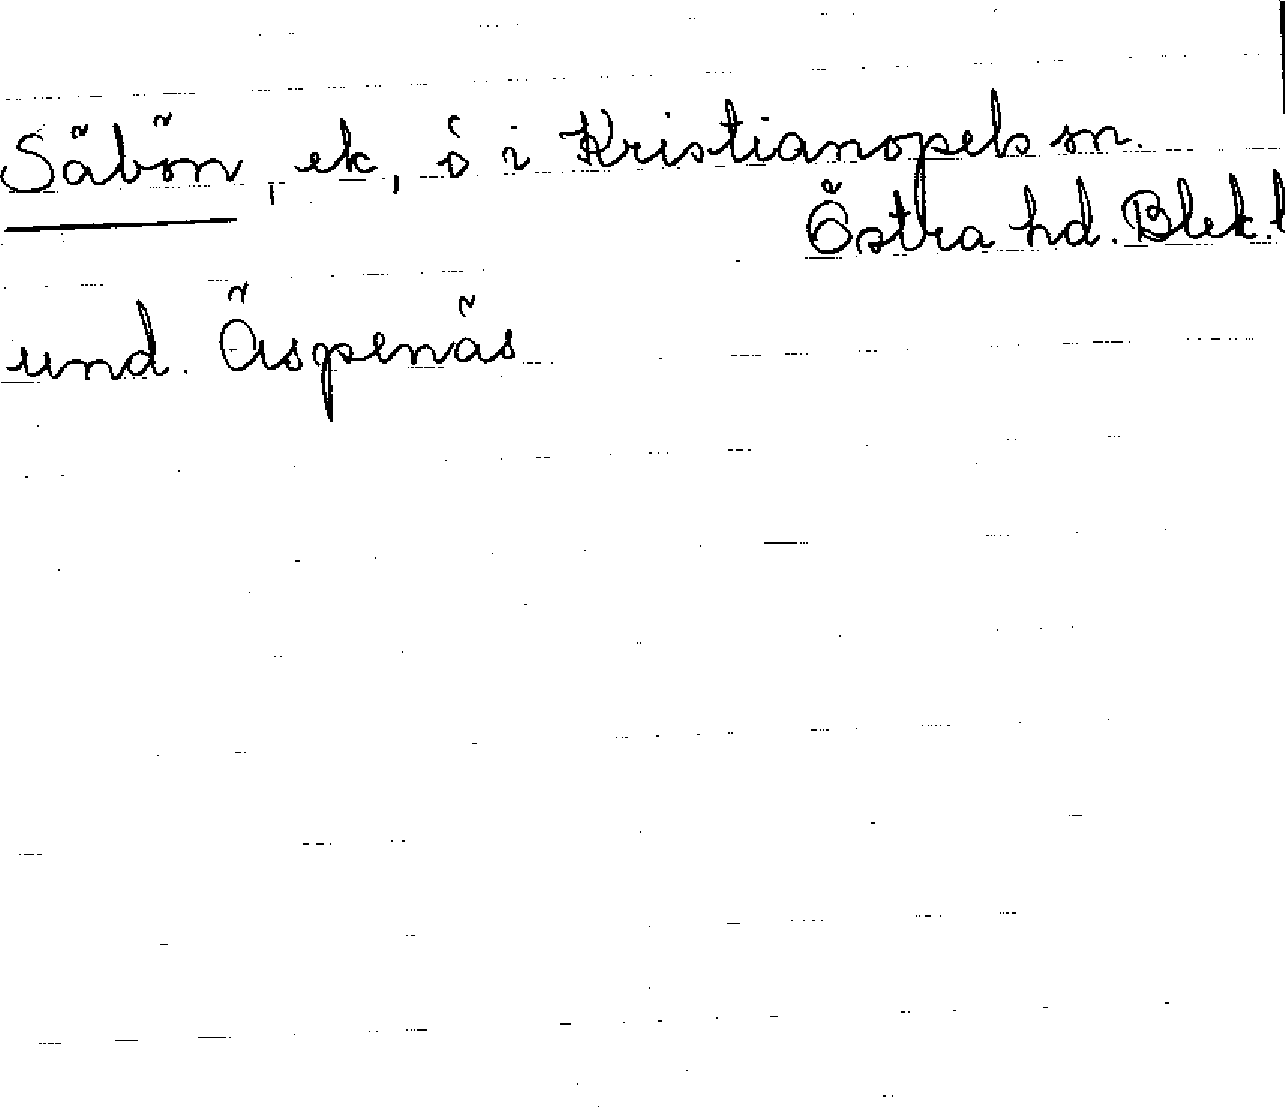 Säbön, ek, ö i Kristianopels sn.
Östra hd. Blek. l
und. Äspenäs